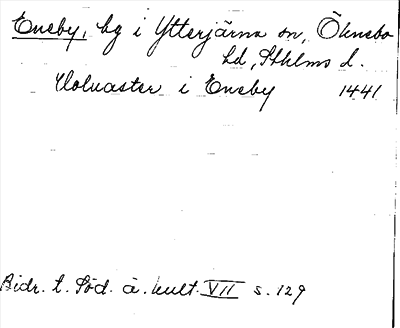 Eneby, bg i Ytterjärna sn, Öknebo
hd, Sthlms l.
Holvaster i Eneby 1441
Bidr. t. Söd. ä. kult. VII s. 129